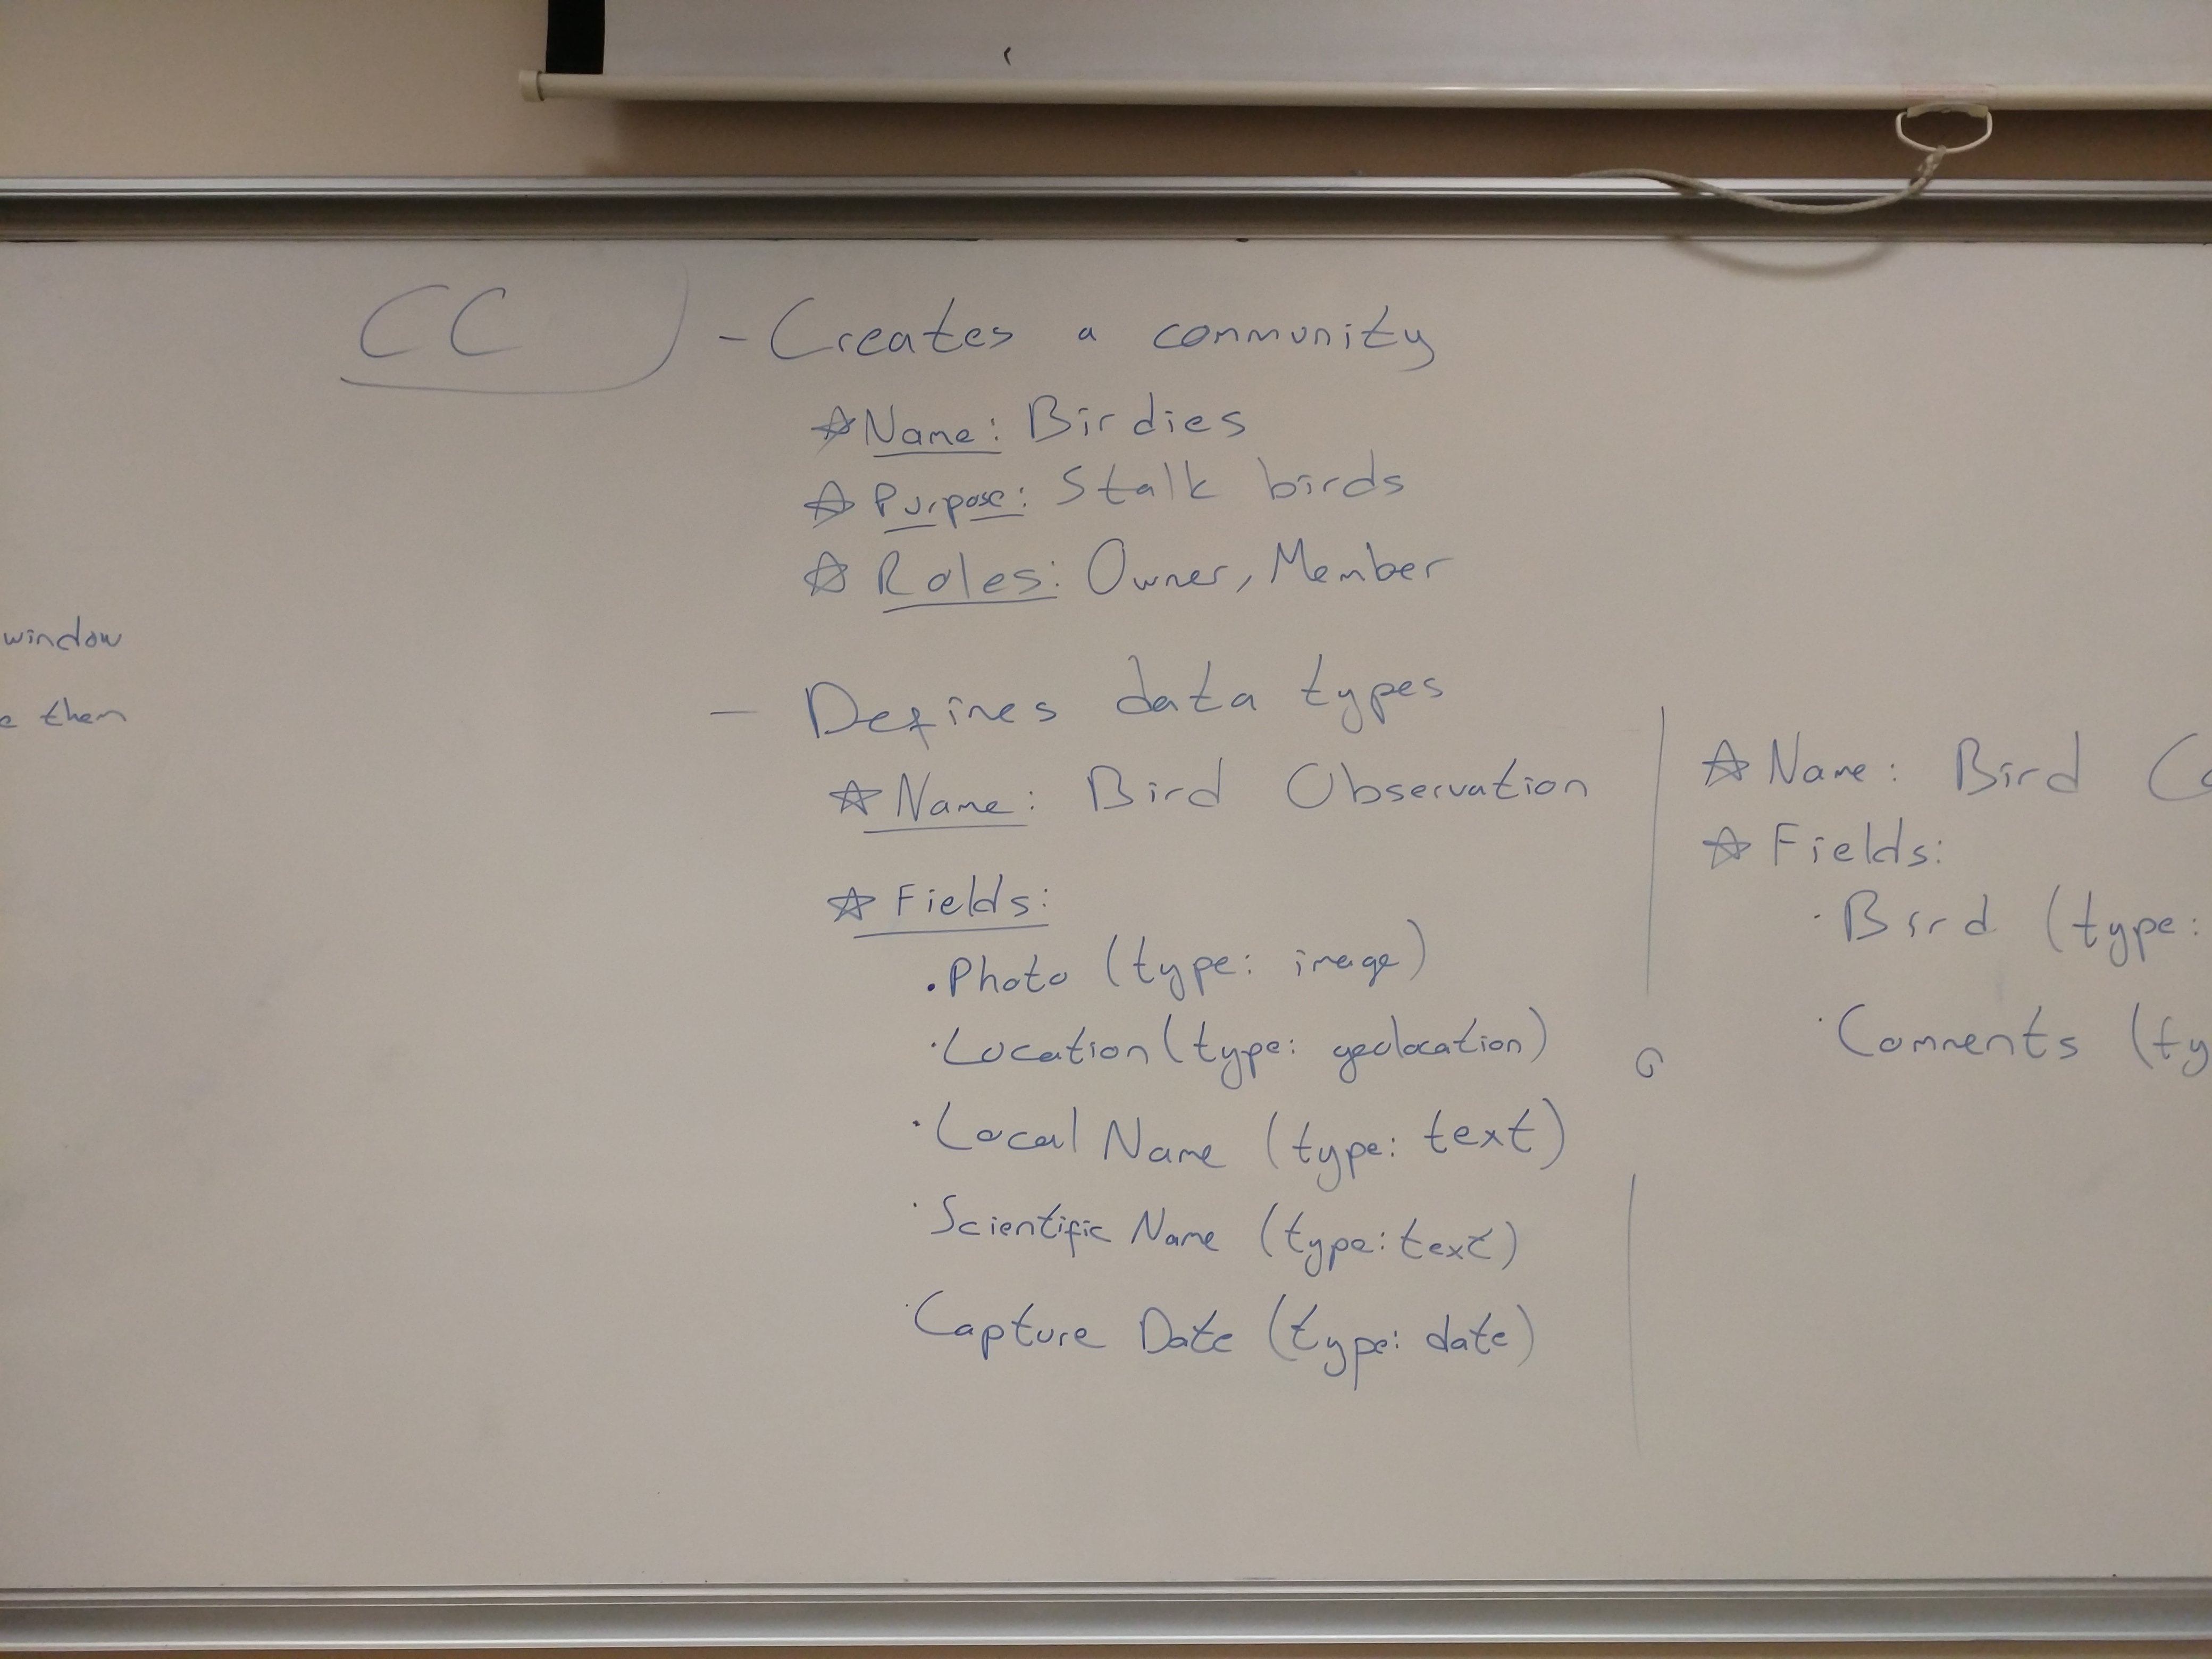 CC
- Creates a community
☆ Name: Birdies
☆ Purpose: Stalk birds
☆ Roles: Owner, Member
window
them
- Defines data types
☆ Name: Bird Observation
☆ Fields:
· Photo (type: image)
· Location (type: geolocation)
· Local Name (type: text)
· Scientific Name (type: text)
· Capture Date (type: date)
☆ Name: Bird
☆ Fields:
· Bird (type:
· Comments (ty